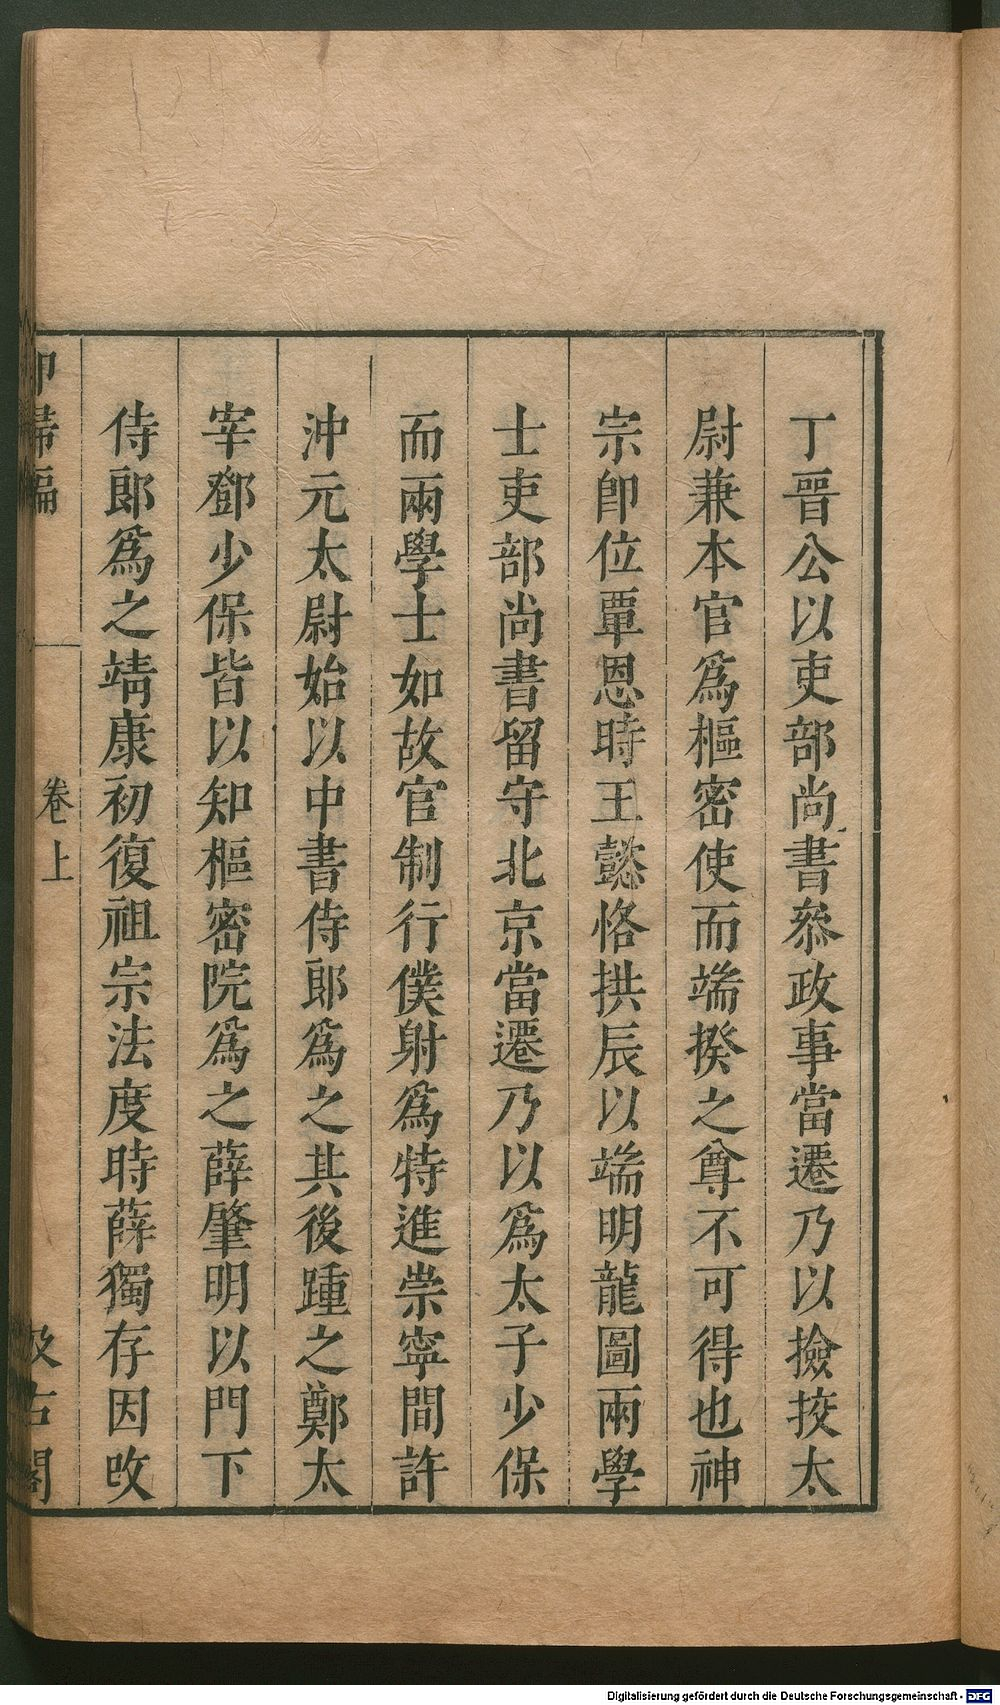 丁晉公以吏部尚書叅政事當遷乃以撿挍太
尉兼本官爲樞密使而端揆之尊不可得也神
宗卽位覃恩時王懿恪拱辰以端明龍圖兩學
士吏部尚書留守北京當遷乃以爲太子少保
而兩學士如故官制行僕射爲特進崇寧間許
沖元太尉始以中書侍郞爲之其後踵之鄭太
宰鄧少保皆以知樞密院爲之薛肇明以門下
侍郞爲之靖康初復祖宗法度時薛獨存因改
卻掃編 卷上 汲古閣
Digitalisierung gefördert durch die Deutsche Forschungsgemeinschaft - DFG